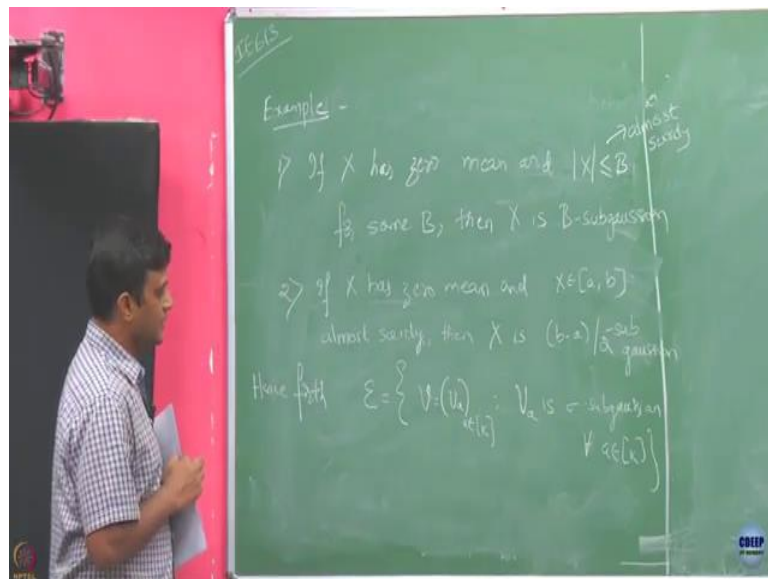 IE613
Example -
1) If X has zero mean and |X| ≤ B, → almost surely
for some B, then X is B-subgaussian
2) If X has zero mean and X∈[a, b]
almost surely, then X is (b-a)/2 -sub gaussian
Hence forth ℰ = { V = (V_a)_{a∈[K]} : V_a is σ-subgaussian
∀ a∈[K] }
NPTEL
CDEEP